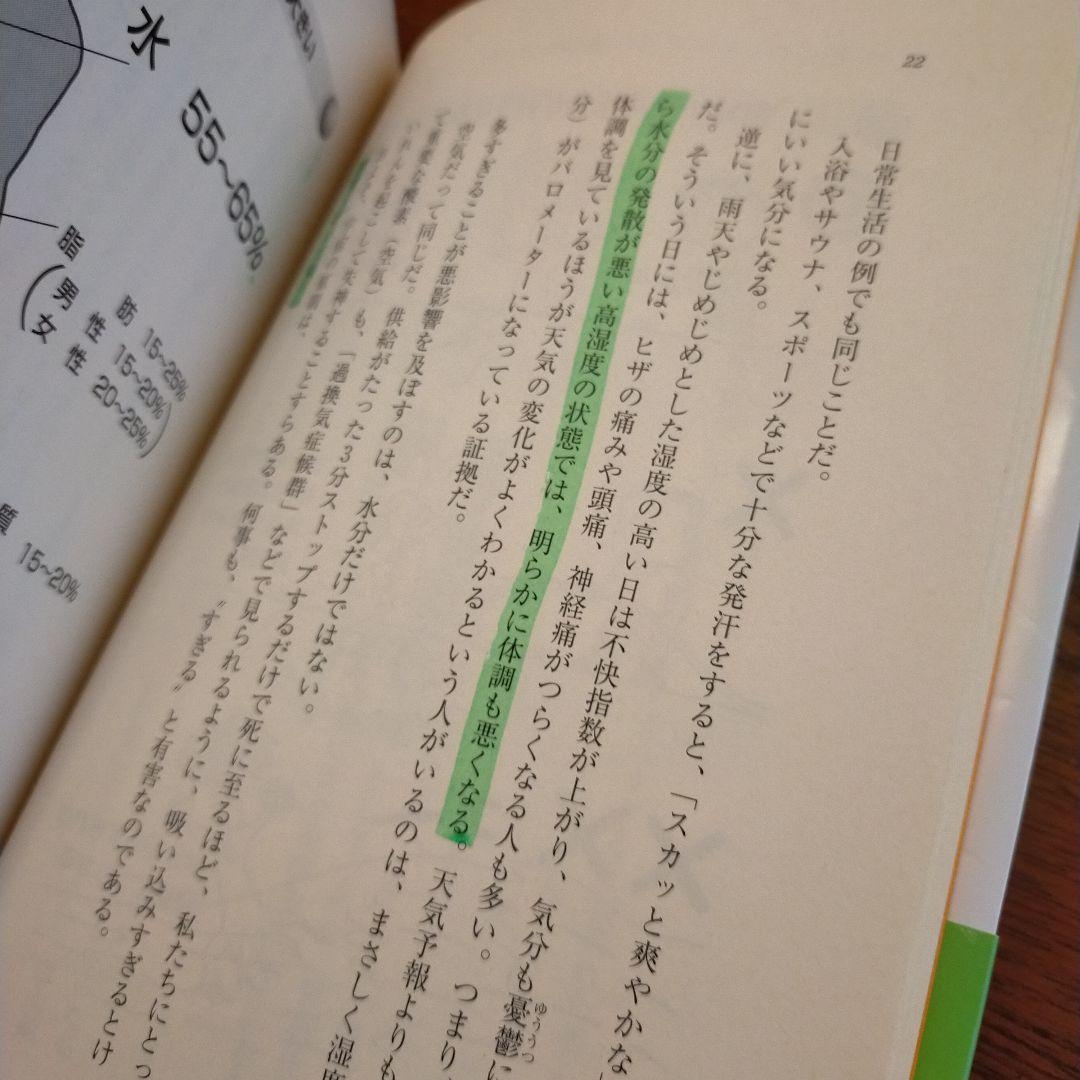 22
日常生活の例でも同じことだ。
入浴やサウナ、スポーツなどで十分な発汗をすると、「スカッと爽やかな
にいい気分になる。
逆に、雨天やじめじめとした湿度の高い日は不快指数が上がり、気分も憂鬱に
ゆううつ
だ。そういう日には、ヒザの痛みや頭痛、神経痛がつらくなる人も多い。つまり、
ら水分の発散が悪い高湿度の状態では、明らかに体調も悪くなる。天気予報よりも
体調を見ているほうが天気の変化がよくわかるという人がいるのは、まさしく湿度
分）がバロメーターになっている証拠だ。
多すぎることが悪影響を及ぼすのは、水分だけではない。
空気だって同じだ。供給がたった3分ストップするだけで死に至るほど、私たちにとっ
て重要な酸素（空気）も、「過換気症候群」などで見られるように、吸い込みすぎるとけ
いれんを起こして失神することすらある。何事も、〝すぎる〟と有害なのである。
水 55〜65%
脂肪 15〜25%
男性 15〜20%
女性 20〜25%
質 15〜20%